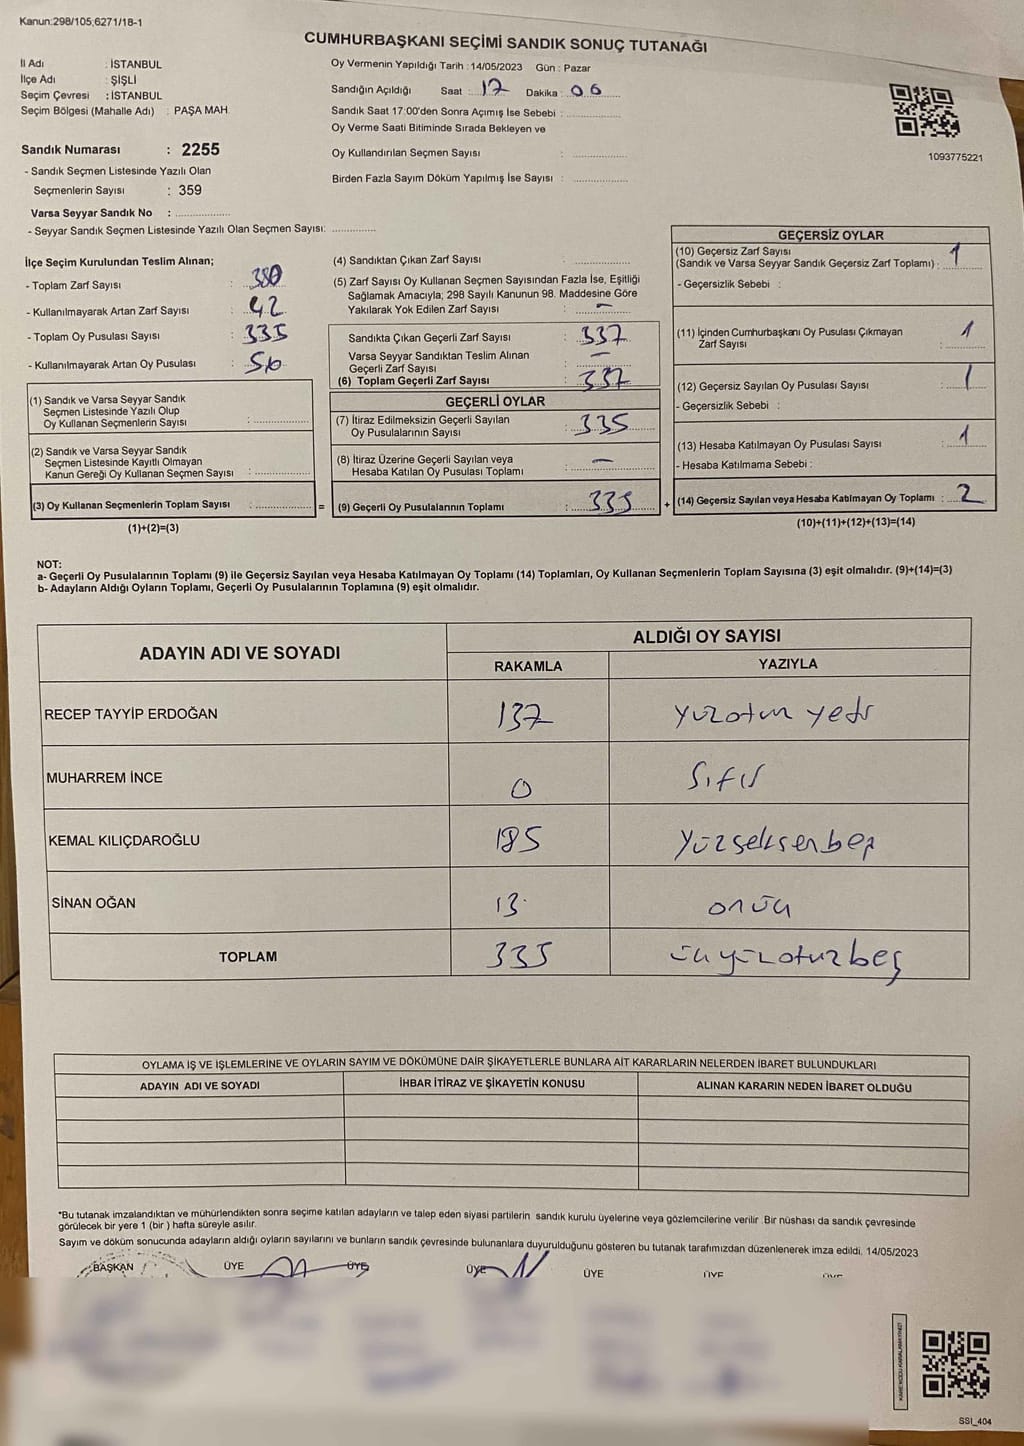 Kanun:298/105,6271/18-1
CUMHURBAŞKANI SEÇİMİ SANDIK SONUÇ TUTANAĞI
İl Adı : İSTANBUL
İlçe Adı : ŞİŞLİ
Seçim Çevresi : İSTANBUL
Seçim Bölgesi (Mahalle Adı) : PAŞA MAH.
Oy Vermenin Yapıldığı Tarih :14/05/2023 Gün : Pazar
Sandığın Açıldığı Saat : 17 Dakika : 06
Sandık Saat 17:00'den Sonra Açımış İse Sebebi :
Oy Verme Saati Bitiminde Sırada Bekleyen ve
Oy Kullandırılan Seçmen Sayısı :
Birden Fazla Sayım Döküm Yapılmış İse Sayısı :
1093775221
Sandık Numarası : 2255
- Sandık Seçmen Listesinde Yazılı Olan
Seçmenlerin Sayısı : 359
Varsa Seyyar Sandık No :
- Seyyar Sandık Seçmen Listesinde Yazılı Olan Seçmen Sayısı:
İlçe Seçim Kurulundan Teslim Alınan;
- Toplam Zarf Sayısı : 380
- Kullanılmayarak Artan Zarf Sayısı : 42
- Toplam Oy Pusulası Sayısı : 335
- Kullanılmayarak Artan Oy Pusulası : 56
(1) Sandık ve Varsa Seyyar Sandık
Seçmen Listesinde Yazılı Olup
Oy Kullanan Seçmenlerin Sayısı :
(2) Sandık ve Varsa Seyyar Sandık
Seçmen Listesinde Kayıtlı Olmayan
Kanun Gereği Oy Kullanan Seçmen Sayısı :
(3) Oy Kullanan Seçmenlerin Toplam Sayısı : =
(1)+(2)=(3)
(4) Sandıktan Çıkan Zarf Sayısı :
(5) Zarf Sayısı Oy Kullanan Seçmen Sayısından Fazla İse, Eşitliği
Sağlamak Amacıyla; 298 Sayılı Kanunun 98. Maddesine Göre
Yakılarak Yok Edilen Zarf Sayısı : —
Sandıkta Çıkan Geçerli Zarf Sayısı : 337
Varsa Seyyar Sandıktan Teslim Alınan
Geçerli Zarf Sayısı : —
(6) Toplam Geçerli Zarf Sayısı : 337
GEÇERLİ OYLAR
(7) İtiraz Edilmeksizin Geçerli Sayılan
Oy Pusulalarının Sayısı : 335
(8) İtiraz Üzerine Geçerli Sayılan veya
Hesaba Katılan Oy Pusulası Toplamı : —
(9) Geçerli Oy Pusulalarının Toplamı : 335 +
GEÇERSİZ OYLAR
(10) Geçersiz Zarf Sayısı
(Sandık ve Varsa Seyyar Sandık Geçersiz Zarf Toplamı) : 1
- Geçersizlik Sebebi :
(11) İçinden Cumhurbaşkanı Oy Pusulası Çıkmayan
Zarf Sayısı : 1
(12) Geçersiz Sayılan Oy Pusulası Sayısı : 1
- Geçersizlik Sebebi :
(13) Hesaba Katılmayan Oy Pusulası Sayısı : 1
- Hesaba Katılmama Sebebi :
(14) Geçersiz Sayılan veya Hesaba Katılmayan Oy Toplamı : 2
(10)+(11)+(12)+(13)=(14)
NOT:
a- Geçerli Oy Pusulalarının Toplamı (9) ile Geçersiz Sayılan veya Hesaba Katılmayan Oy Toplamı (14) Toplamları, Oy Kullanan Seçmenlerin Toplam Sayısına (3) eşit olmalıdır. (9)+(14)=(3)
b- Adayların Aldığı Oyların Toplamı, Geçerli Oy Pusulalarının Toplamına (9) eşit olmalıdır.
ADAYIN ADI VE SOYADI
ALDIĞI OY SAYISI
RAKAMLA YAZIYLA
RECEP TAYYİP ERDOĞAN 137 yüzotuzyedi
MUHARREM İNCE 0 sıfır
KEMAL KILIÇDAROĞLU 185 yüzseksenbeş
SİNAN OĞAN 13 onüç
TOPLAM 335 üçyüzotuzbeş
OYLAMA İŞ VE İŞLEMLERİNE VE OYLARIN SAYIM VE DÖKÜMÜNE DAİR ŞİKAYETLERLE BUNLARA AİT KARARLARIN NELERDEN İBARET BULUNDUKLARI
ADAYIN ADI VE SOYADI İHBAR İTİRAZ VE ŞİKAYETİN KONUSU ALINAN KARARIN NEDEN İBARET OLDUĞU
*Bu tutanak imzalandıktan ve mühürlendikten sonra seçime katılan adayların ve talep eden siyasi partilerin sandık kurulu üyelerine veya gözlemcilerine verilir. Bir nüshası da sandık çevresinde
görülecek bir yere 1 (bir) hafta süreyle asılır.
Sayım ve döküm sonucunda adayların aldığı oyların sayılarını ve bunların sandık çevresinde bulunanlara duyurulduğunu gösteren bu tutanak tarafımızdan düzenlenerek imza edildi. 14/05/2023
BAŞKAN ÜYE ÜYE ÜYE ÜYE ÜYE ÜYE
SSI_404